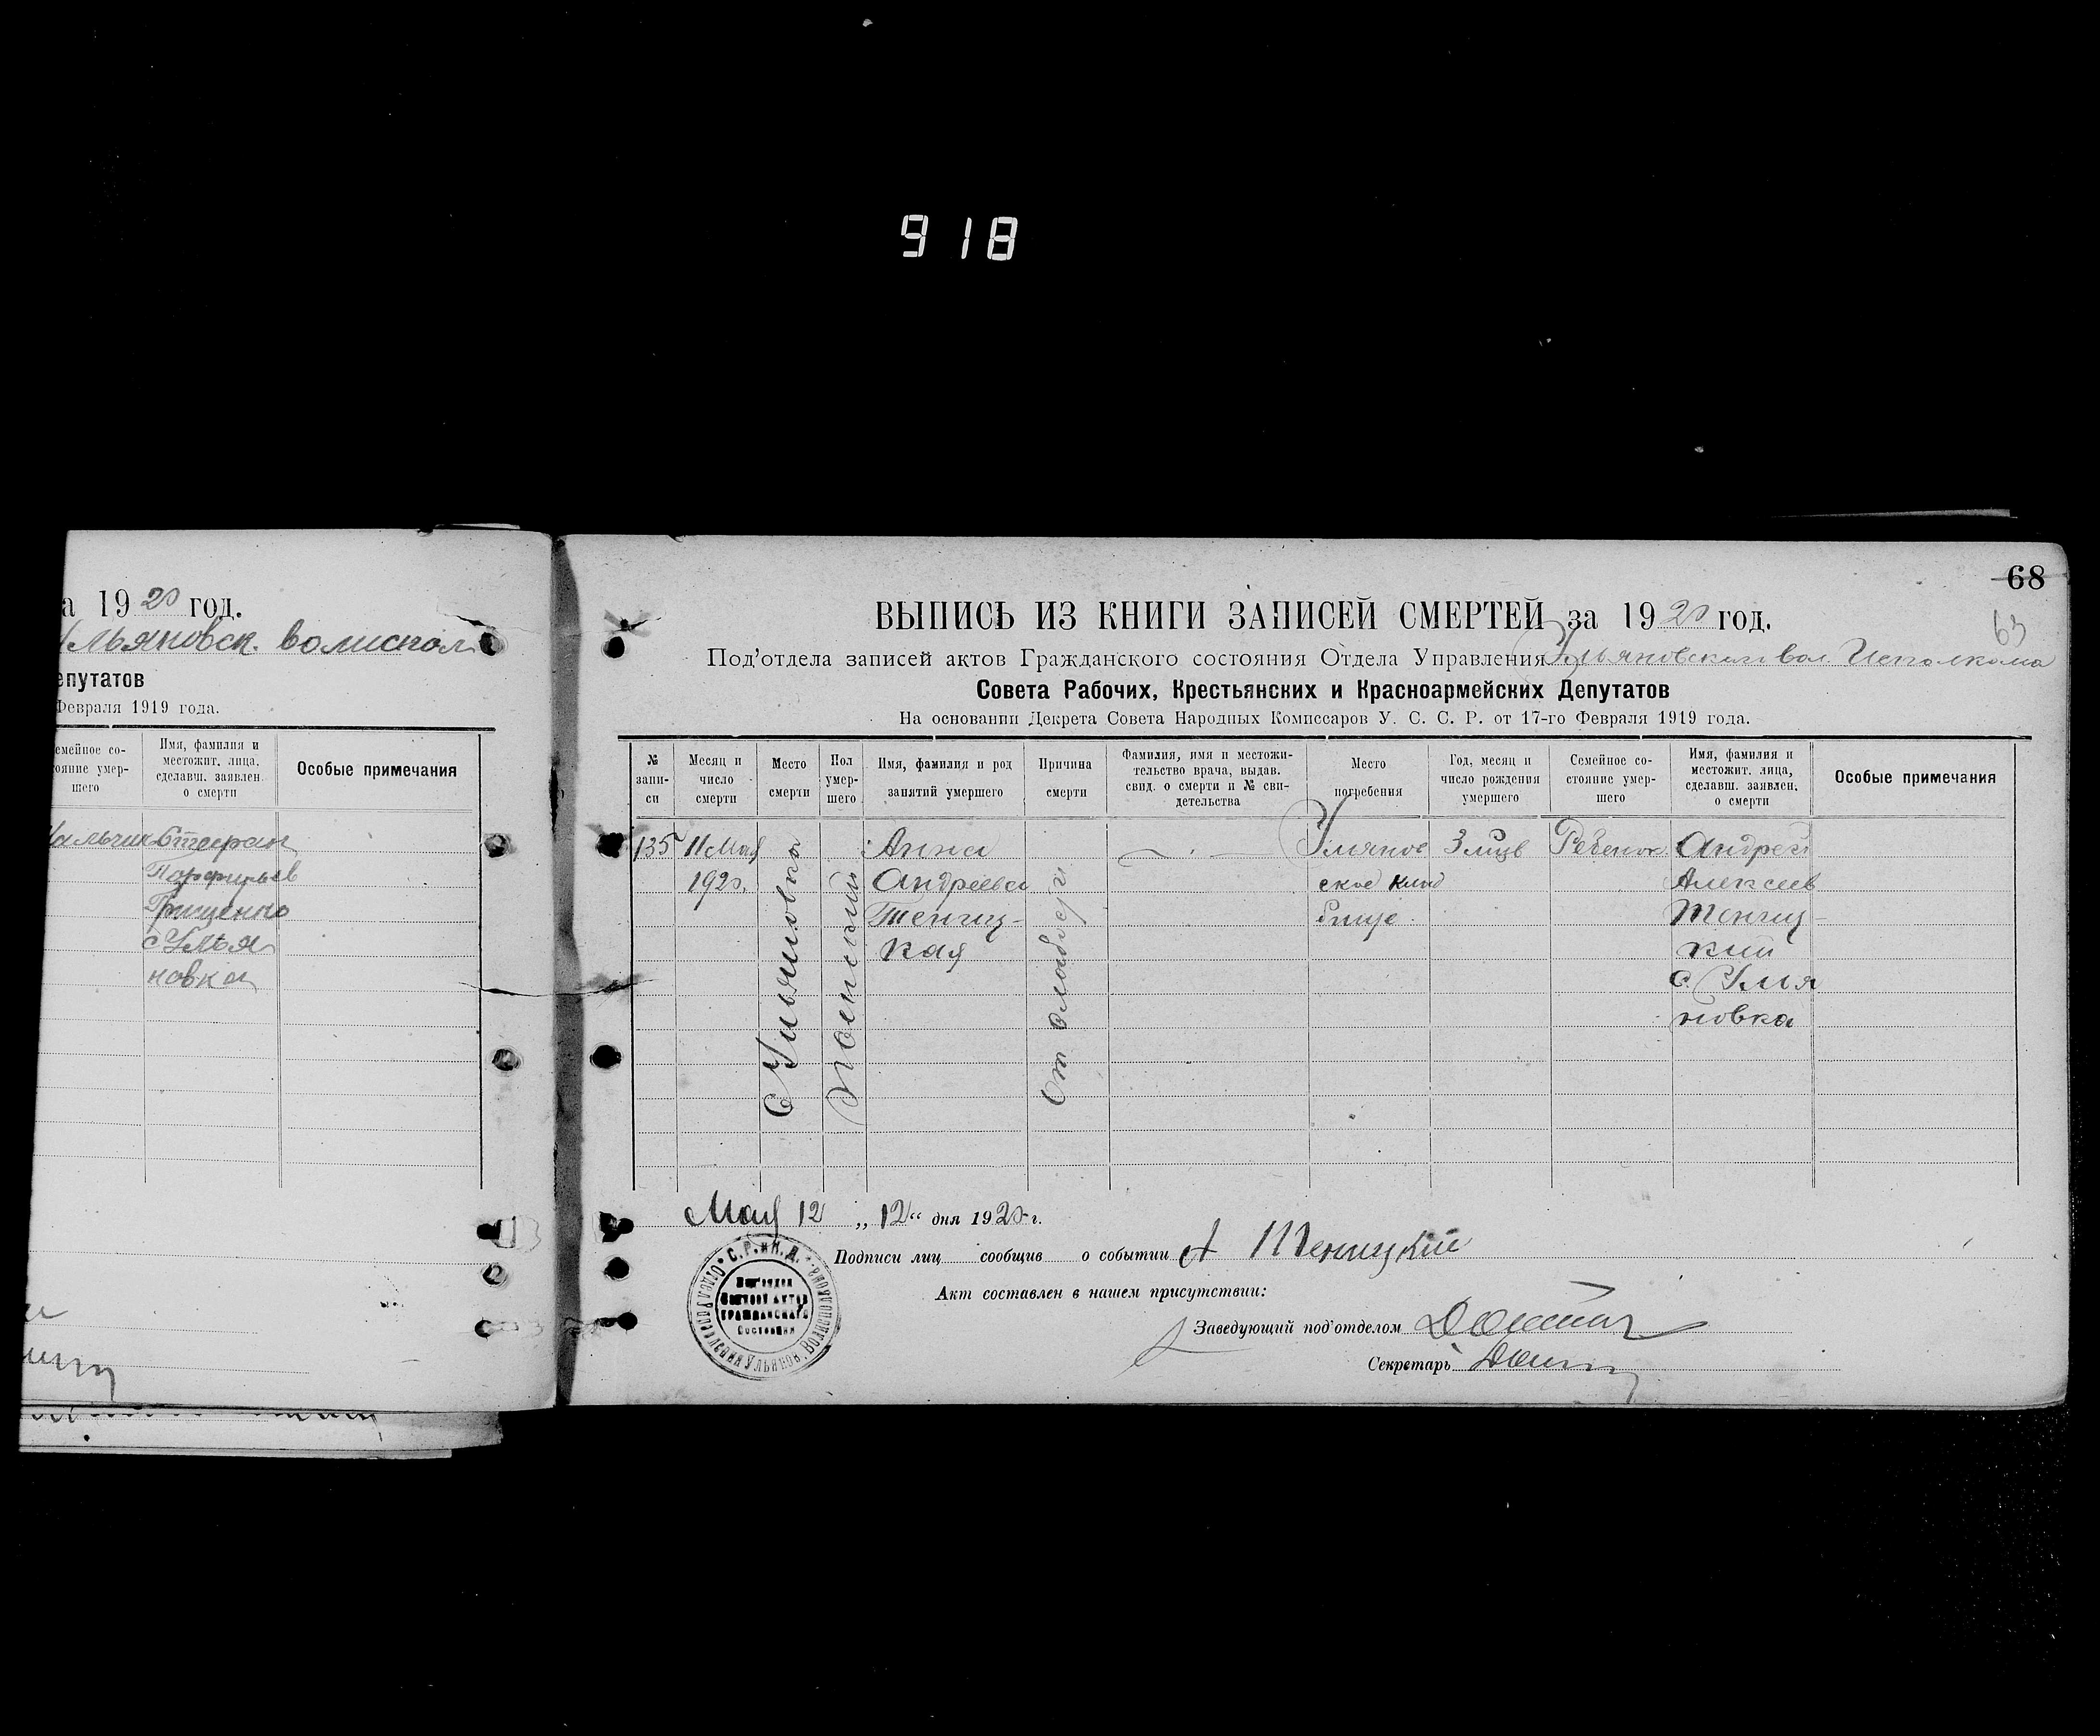 918
а 1920 год.
Ульяновск. волиспол
епутатов
Февраля 1919 года.
емейное со-
ояние умер-
шего
Имя, фамилия и
местожит. лица,
сделавш. заявлен.
о смерти
Особые примечания
Мальчик
Стефан
Порфирьев
Грищенко
с Улья
новка
68
63
ВЫПИСЬ ИЗ КНИГИ ЗАПИСЕЙ СМЕРТЕЙ за 1920 год.
Под'отдела записей актов Гражданского состояния Отдела Управления Ульяновского вол. Исполкома
Совета Рабочих, Крестьянских и Красноармейских Депутатов
На основании Декрета Совета Народных Комиссаров У. С. С. Р. от 17-го Февраля 1919 года.
№
запи-
си
Месяц и
число
смерти
Место
смерти
Пол
умер-
шего
Имя, фамилия и род
занятий умершего
Причина
смерти
Фамилия, имя и местожи-
тельство врача, выдав.
свид. о смерти и № сви-
детельства
Место
погребения
Год, месяц и
число рождения
умершего
Семейное со-
стояние умер-
шего
Имя, фамилия и
местожит. лица,
сделавш. заявлен.
о смерти
Особые примечания
135
11 Мая
1920.
С Ульяновка
Женский
Анна
Андреева
Тениц-
кая
От
Уляnов
ское клад
бище
3 мцв
Ребенок
Андрей
Алексеев
Тениц-
кий
с. Улья
новка
Мая 12 „12“ дня 1920 г.
Подписи лиц сообщив о событии А Теницкий
Акт составлен в нашем присутствии:
Заведующий под'отделом
Секретарь
С.Р. и К.Д.
Под'отдел
Записи актов
гражданского
Состояния